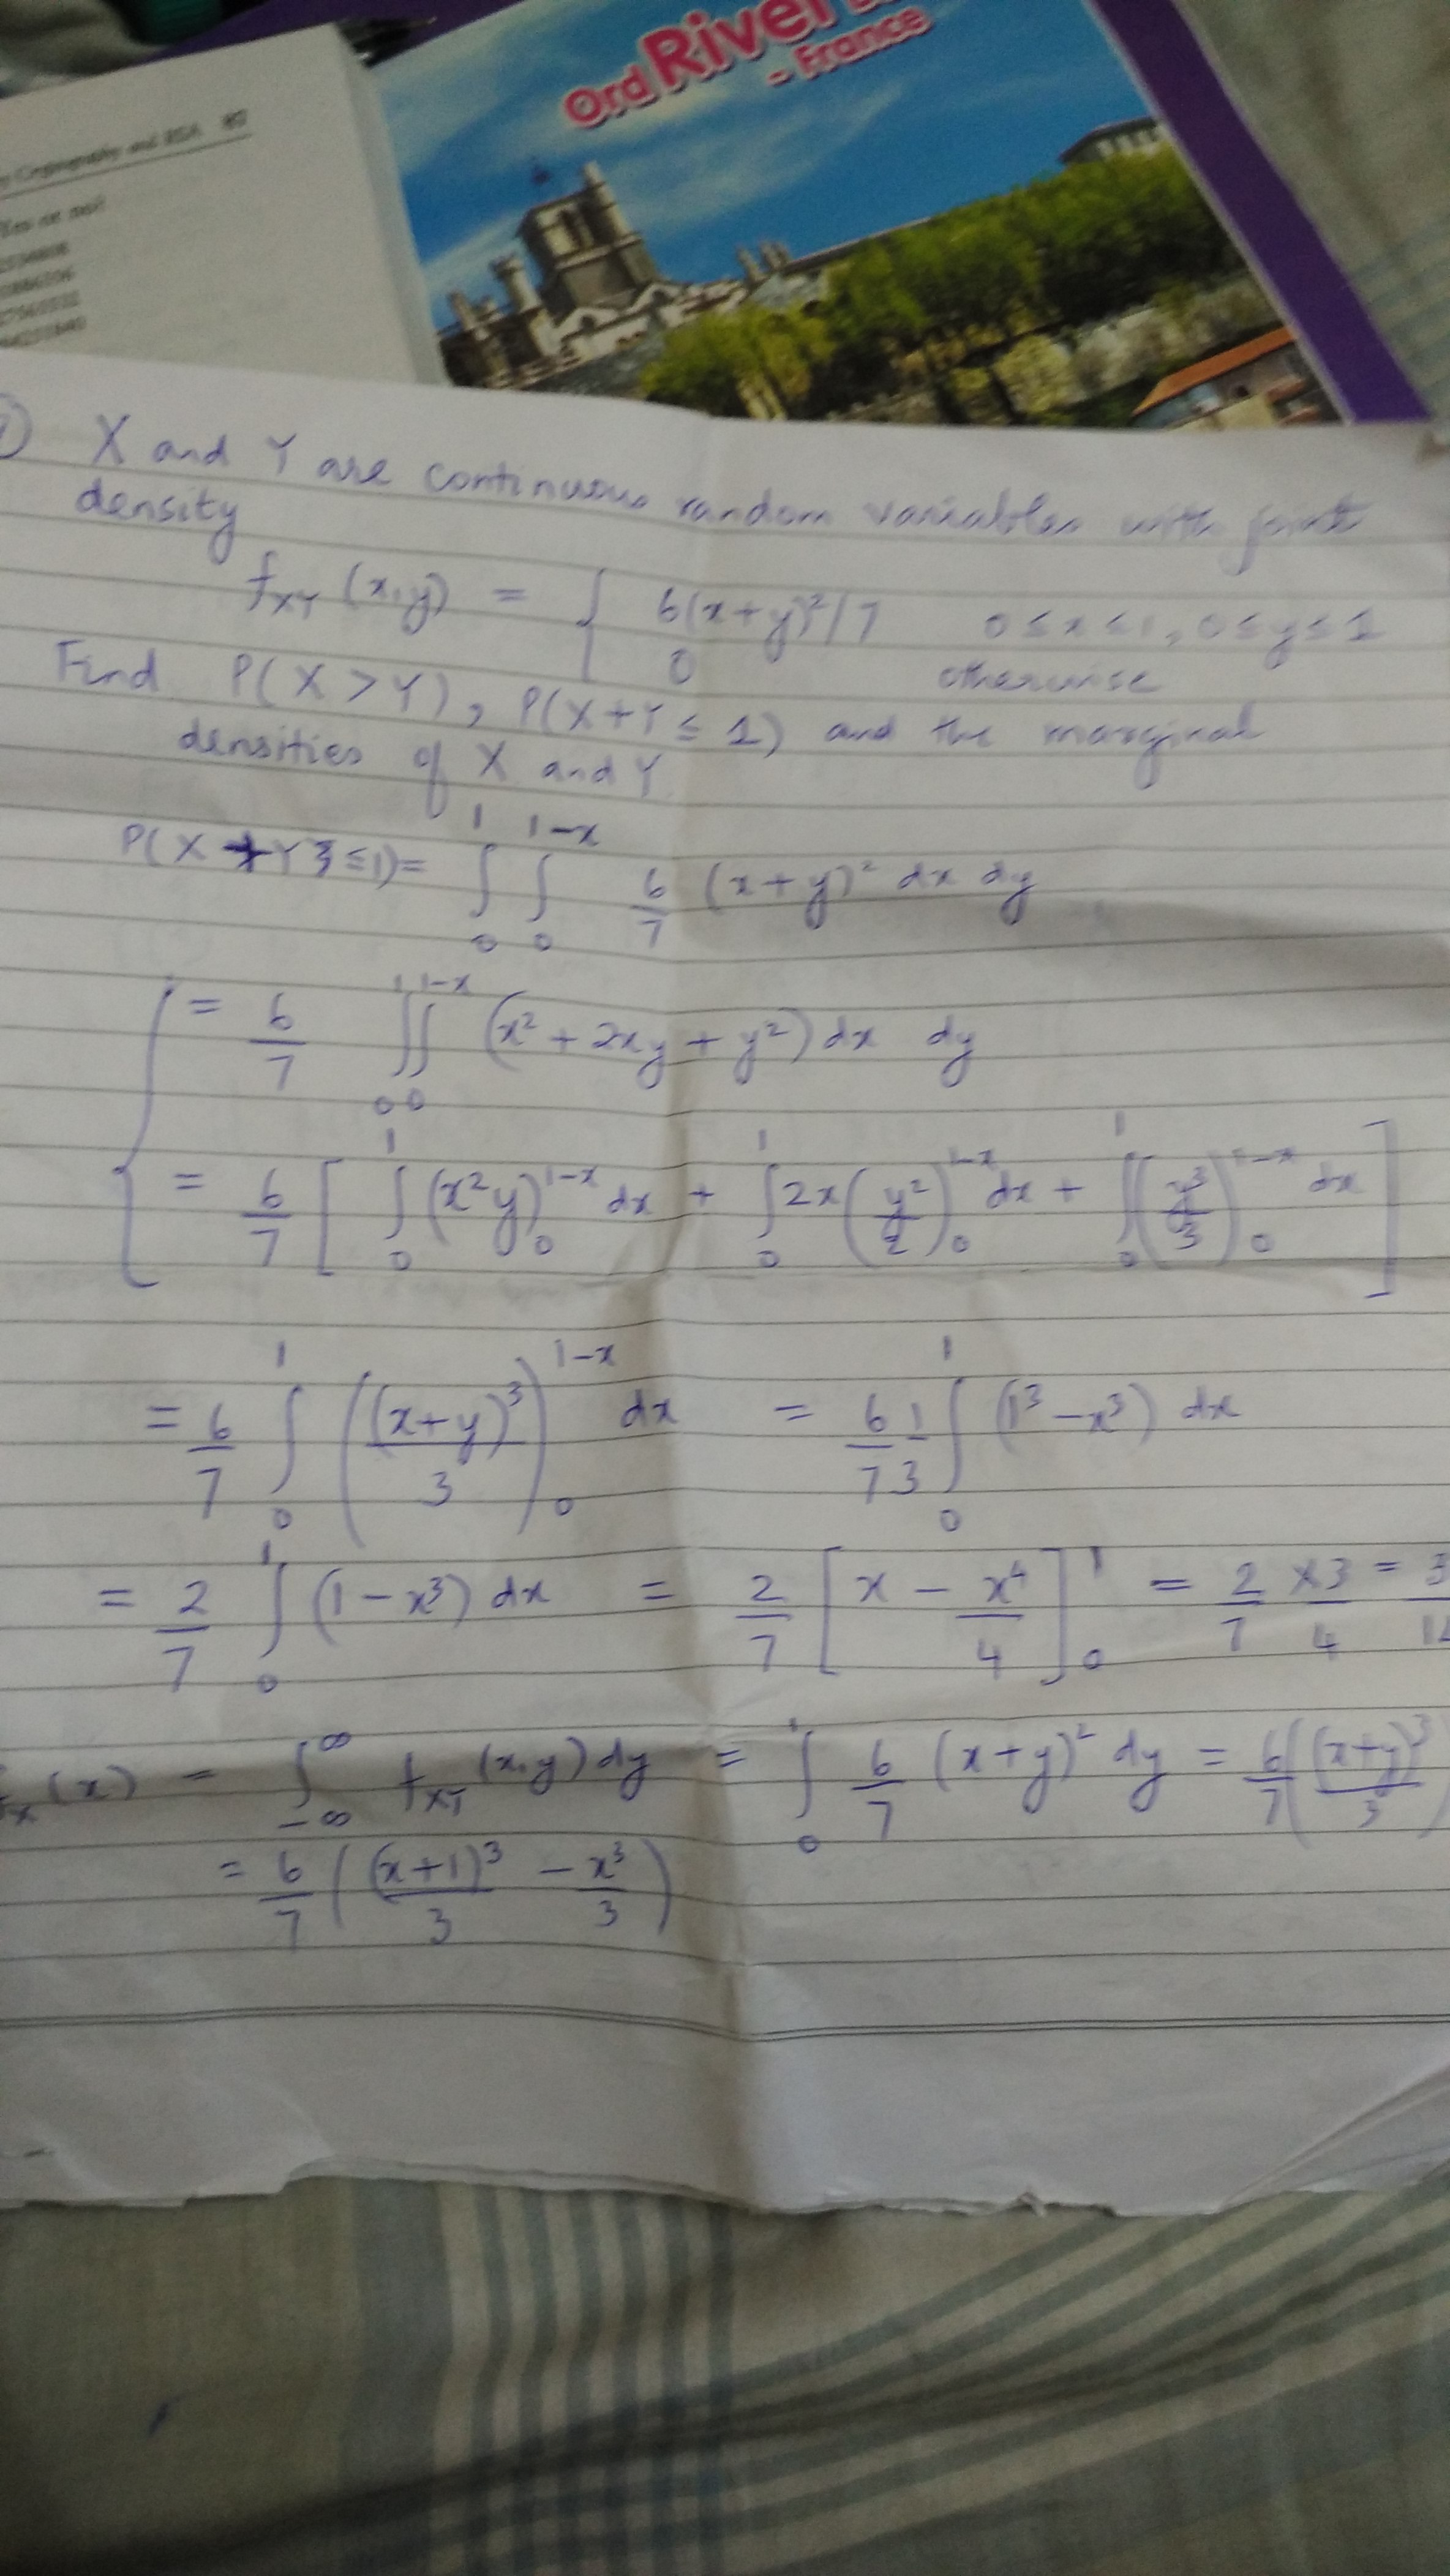 Ord River
- France
Cryptography and RSA
Yes or no?
X and Y are continuous random variables with joint
density
f_XY (x,y) = { 6(x+y)²/7 0 ≤ x ≤ 1, 0 ≤ y ≤ 1
0 otherwise
Find P(X > Y), P(X+Y ≤ 1) and the marginal
densities of X and Y
P(X + Y ≤ 1) = ∫₀¹ ∫₀^(1-x) 6/7 (x+y)² dx dy
= 6/7 ∫₀¹ ∫₀^(1-x) (x² + 2xy + y²) dx dy
= 6/7 [ ∫₀¹ (x²y)₀^(1-x) dx + ∫₀¹ 2x (y²/2)₀^(1-x) dx + ∫₀¹ (y³/3)₀^(1-x) dx ]
= 6/7 ∫₀¹ ((x+y)³/3)₀^(1-x) dx = 6/7 1/3 ∫₀¹ (1³ - x³) dx
= 2/7 ∫₀¹ (1 - x³) dx = 2/7 [x - x⁴/4]₀¹ = 2/7 × 3/4 = 3/
(x) = ∫_-∞^∞ f_XY (x,y) dy = ∫₀¹ 6/7 (x+y)² dy = 6/7 ((x+y)³/3
= 6/7 ( (x+1)³/3 - x³/3 )